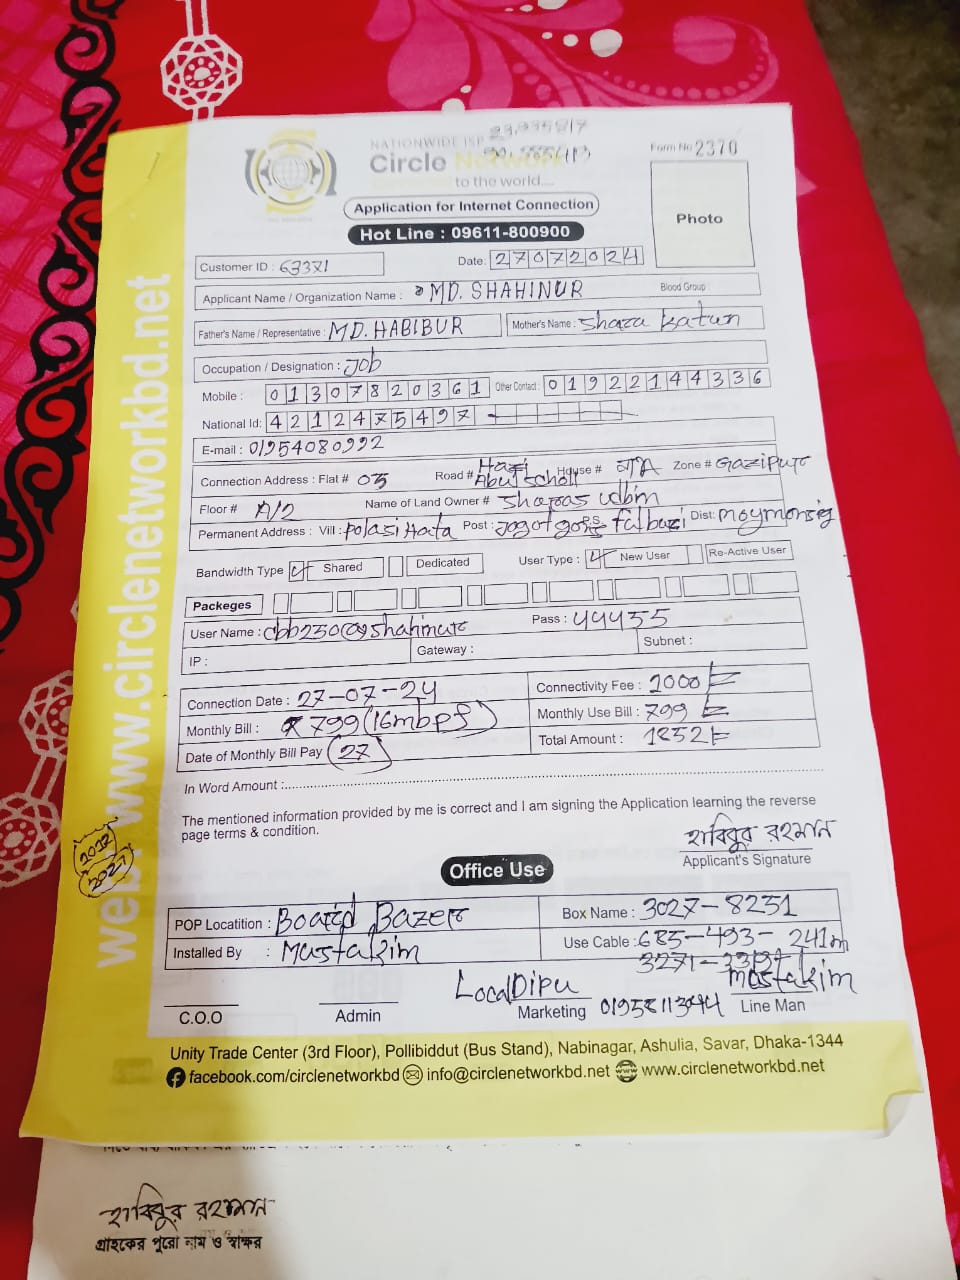 23.935817
NATIONWIDE ISP
Circle Network
to the world....
Form No 2370
Photo
Application for Internet Connection
Hot Line : 09611-800900
Customer ID : 63371
Date: 27072024
Applicant Name / Organization Name : MD. SHAHINUR Blood Group :
Father's Name / Representative : MD. HABIBUR Mother's Name : Shara Katun
Occupation / Designation : Job
Mobile : 01307820361 Other Contact : 01922144336
National Id: 4212475497
E-mail : 01954080992
Connection Address : Flat # 03 Road # Hazi Abul School House # Zone # Gazipur
Floor # A/2 Name of Land Owner #
Permanent Address : Vill : Polasi Hata Post : P.S Dist: moymonsig
Bandwidth Type Shared Dedicated User Type : New User Re-Active User
Packeges
User Name : cbb230@shahinur Pass : 44455
IP : Gateway : Subnet :
Connection Date : 27-07-24 Connectivity Fee :
Monthly Bill : 799 (16mbps) Monthly Use Bill : 799
Date of Monthly Bill Pay 27 Total Amount : 1852
In Word Amount :
The mentioned information provided by me is correct and I am signing the Application learning the reverse
page terms & condition.
হাবিবুর রহমান
Applicant's Signature
Office Use
POP Locatition : Board Bazer Box Name : 3027-8251
Installed By : Mustakim Use Cable : 685-493- 241m
Local Dipu Mostakim
C.O.O Admin Marketing Line Man
Unity Trade Center (3rd Floor), Pollibiddut (Bus Stand), Nabinagar, Ashulia, Savar, Dhaka-1344
facebook.com/circlenetworkbd info@circlenetworkbd.net www.circlenetworkbd.net
web: www.circlenetworkbd.net
হাবিবুর রহমান
গ্রাহকের পুরো নাম ও স্বাক্ষর